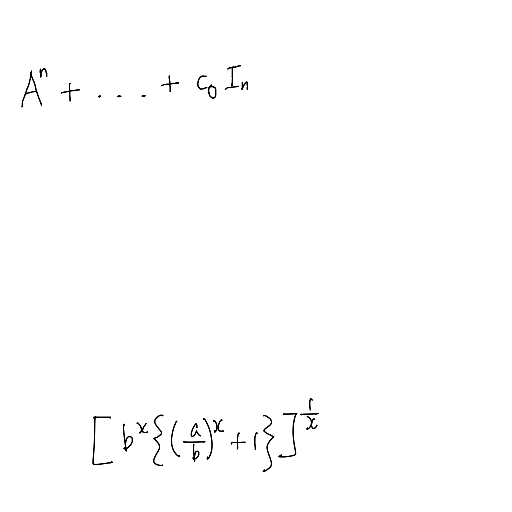 A^n + . . . + c_0 I_n
[ b^x { ( a/b )^x + 1 } ]^{1/x}